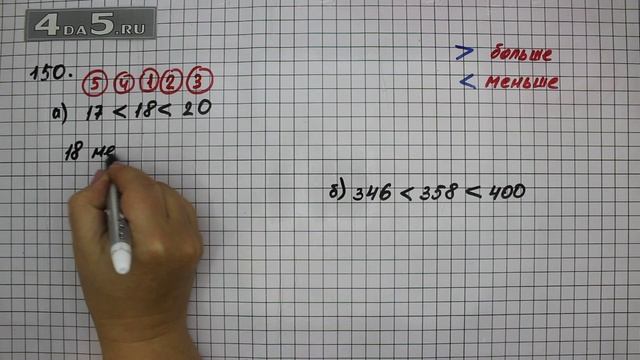 4DA5.RU
150.
5 4 1 2 3
а) 17 < 18 < 20
18 ме
> больше
< меньше
б) 346 < 358 < 400